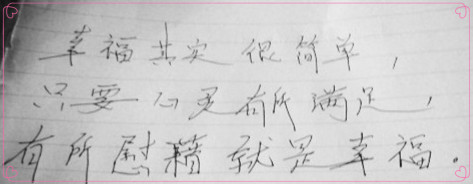 幸福其实很简单，
只要心灵有所满足，
有所慰籍就是幸福。